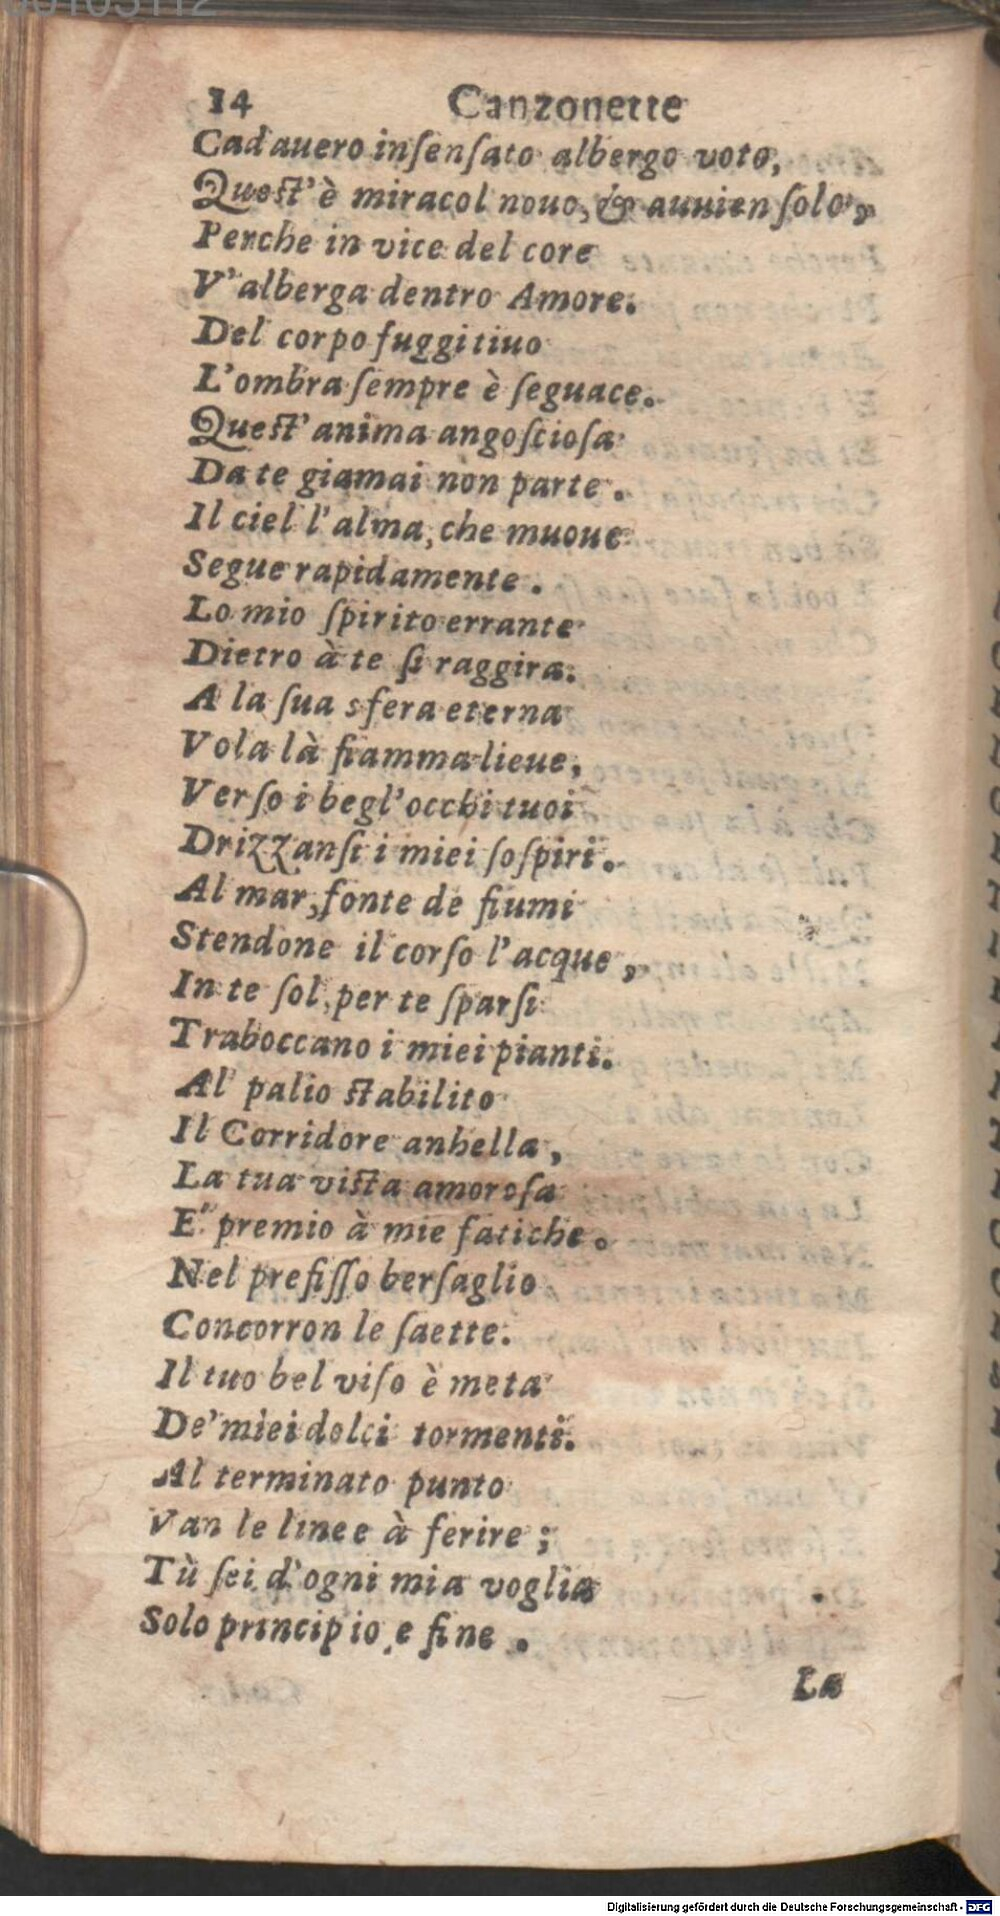 14 Canzonette
Cadauero inſenſato albergo voto,
Queſt'è miracol nouo, & auuien ſolo,
Perche in vice del core
V'alberga dentro Amore.
Del corpo fuggitiuo
L'ombra ſempre è ſeguace.
Queſt'anima angoſcioſa
Da te giamai non parte.
Il ciel l'alma, che muoue
Segue rapidamente.
Lo mio ſpirito errante
Dietro à te ſi raggira.
A la ſua sfera eterna
Vola là fiamma lieue,
Verſo i begl'occhi tuoi
Drizzanſi i miei ſoſpiri.
Al mar, fonte de fiumi
Stendone il corſo l'acque,
In te ſol, per te ſparſi
Traboccano i miei pianti.
Al palio ſtabilito
Il Corridore anhella,
La tua viſta amoroſa
E' premio à mie fatiche.
Nel prefiſſo berſaglio
Concorron le ſaette.
Il tuo bel viſo è meta
De' miei dolci tormenti.
Al terminato punto
Van le linee à ferire;
Tù ſei d'ogni mia voglia
Solo principio e fine.
La
Digitalisierung gefördert durch die Deutsche Forschungsgemeinschaft - DFG